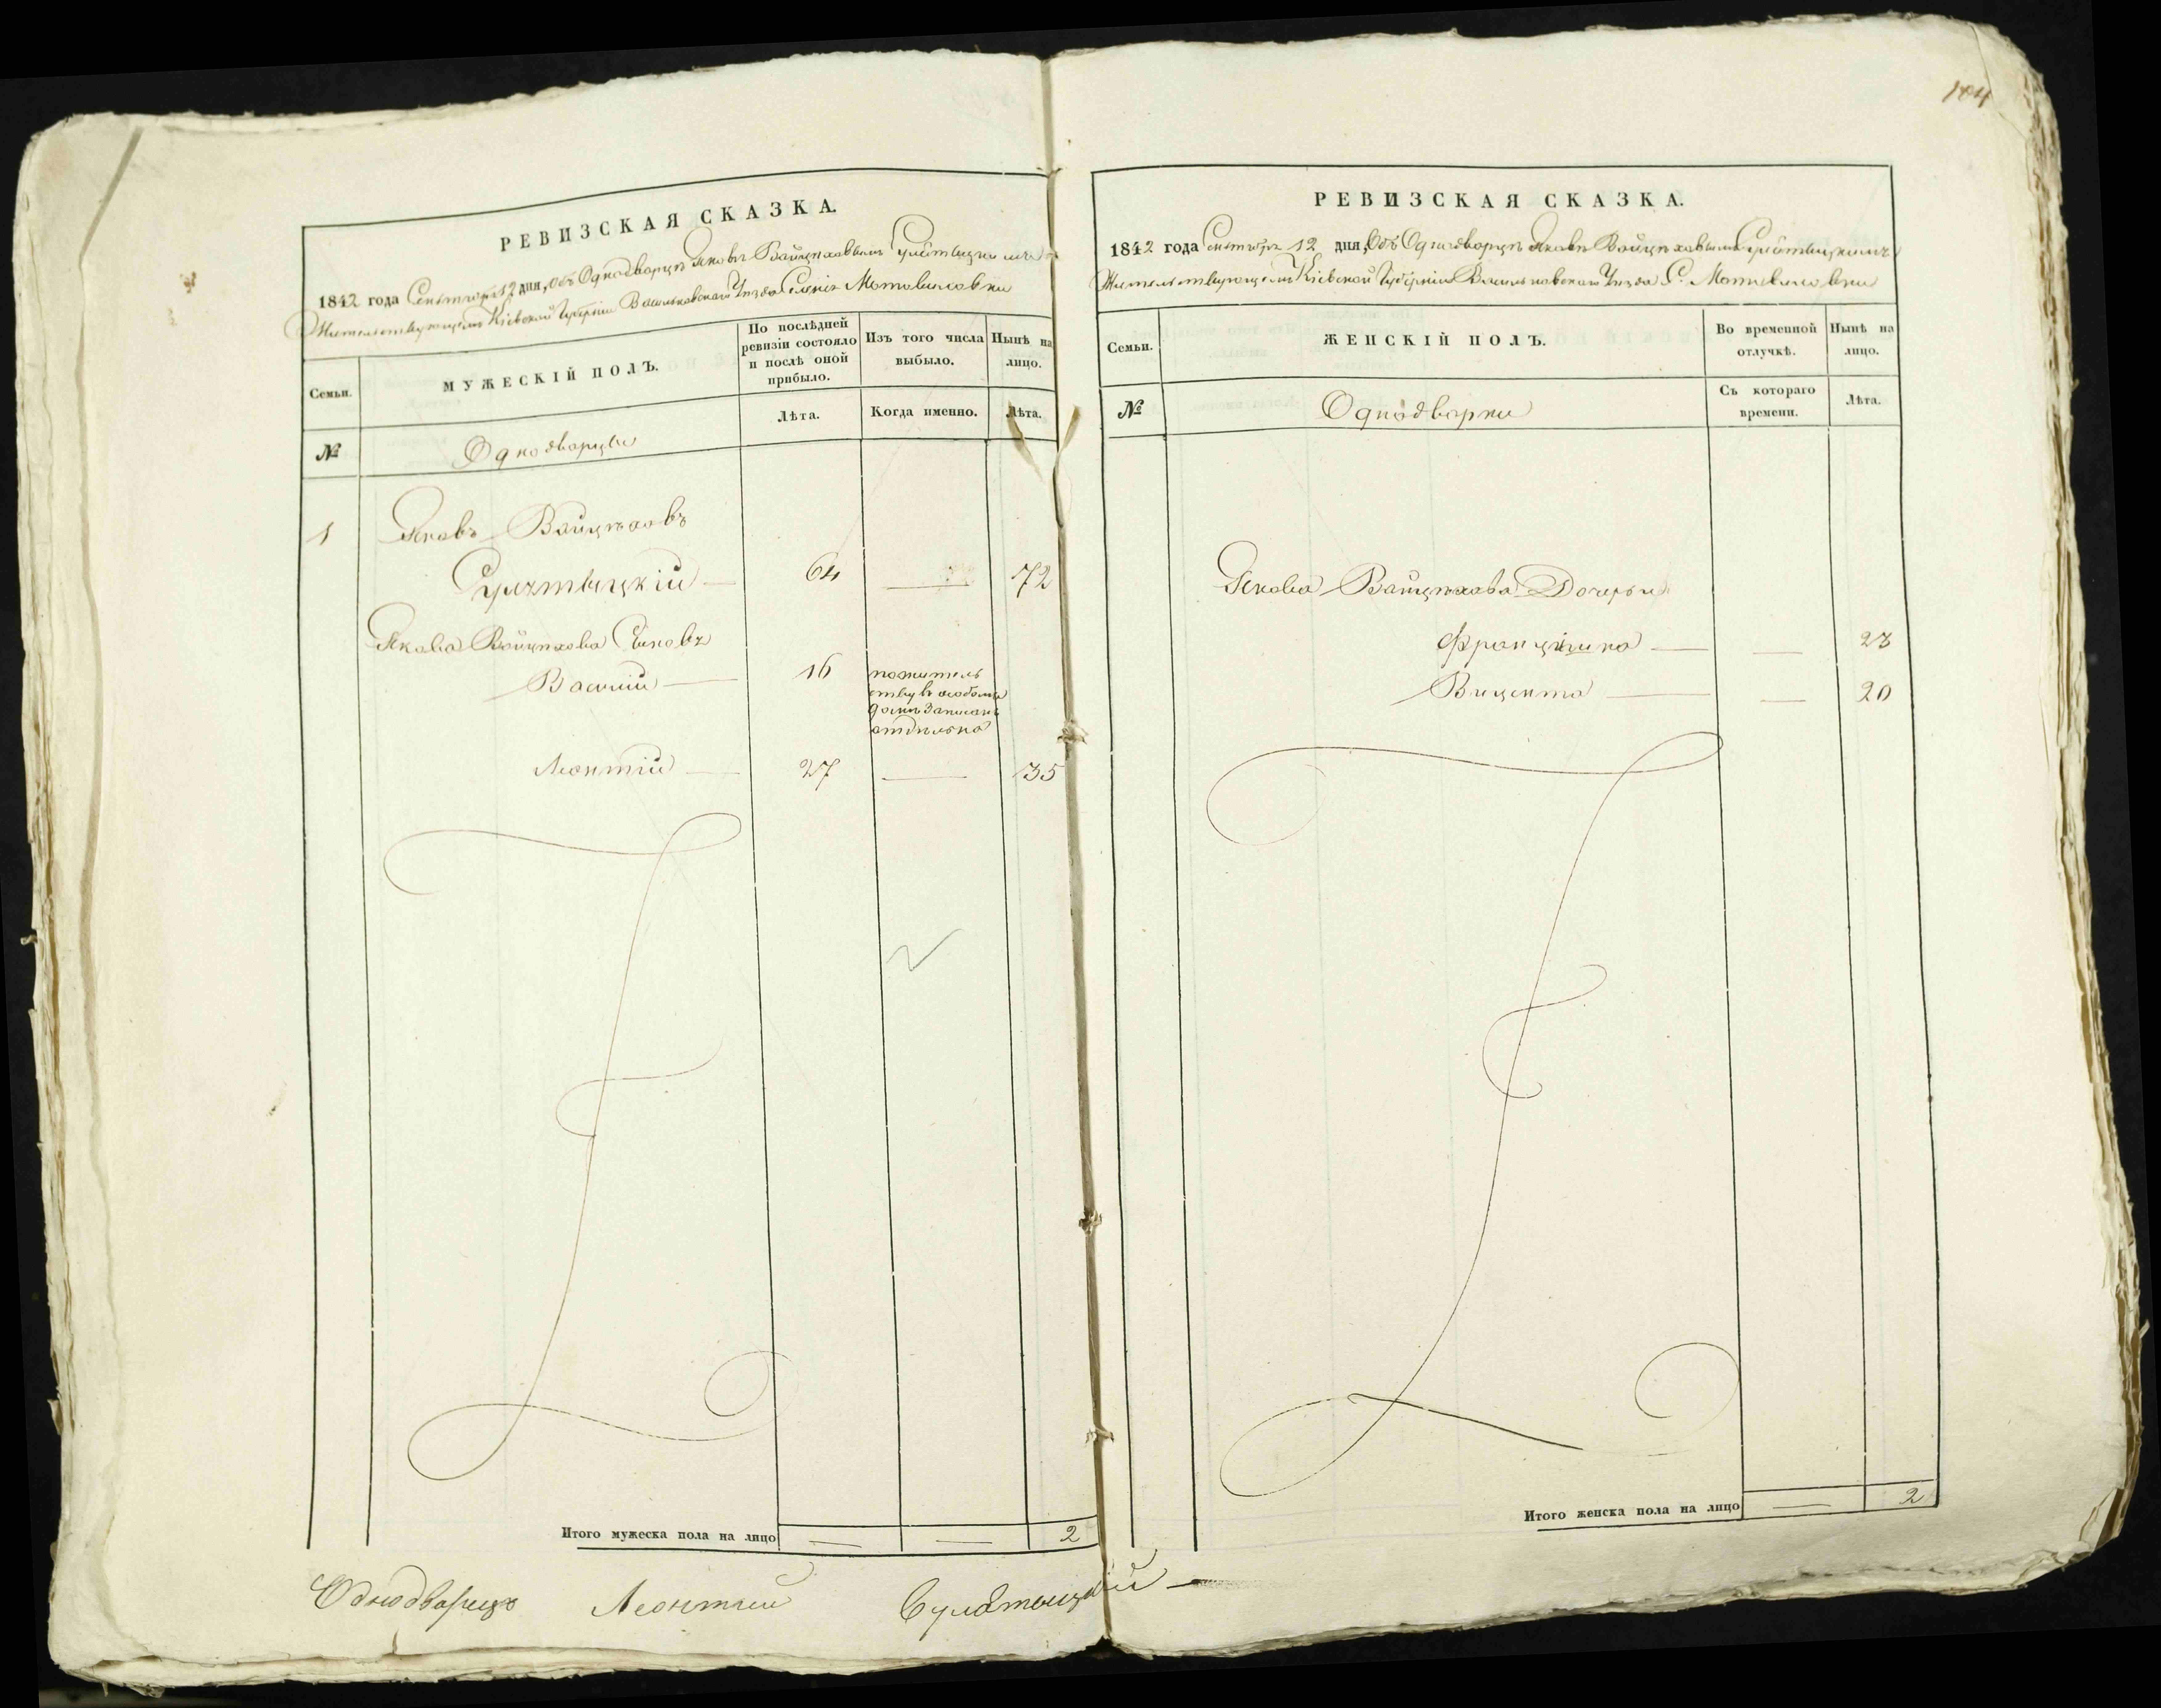 184
РЕВИЗСКАЯ СКАЗКА.
1842 года Сентября 12 дня, Объ Однодворцѣ Яковѣ Войцѣховымъ
Жительствующемъ Кіевской Губерніи Васильковскаго Уѣзда Селенія Мотовиловки
Семьи.
МУЖЕСКІЙ ПОЛЪ.
По послѣдней ревизіи состояло и послѣ оной прибыло.
Изъ того числа выбыло.
Нынѣ на лицо.
№
Однодворцы
Лѣта.
Когда именно.
Лѣта.
1 Яковъ Войцѣховъ
64 — 72
Якова Войцѣхова Сыновъя
Василій — 16 пожитель
ству въ особомъ
домѣ Записанъ
отдѣльно
Леонтій — 27 — 35
Итого мужеска пола на лицо — — 2
Однодворецъ Леонтий
РЕВИЗСКАЯ СКАЗКА.
1842 года Сентября 12 дня, Объ Однодворцѣ Яковѣ Войцѣховымъ
Жительствующемъ Кіевской Губерніи Васильковскаго Уѣзда С. Мотовиловки
Семьи.
ЖЕНСКІЙ ПОЛЪ.
Во временной отлучкѣ.
Нынѣ на лицо.
№
Однодворки
Съ котораго времени.
Лѣта.
Якова Войцѣхова Дочери
Францишка — — 23
Вицента — — 20
Итого женска пола на лицо — 2